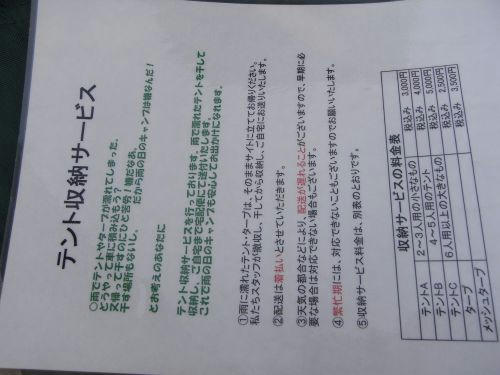 テント収納サービス
○雨でテントやタープが濡れてしまった。
どうやって車に積み込もう?
又帰って干すのにひと苦労!嫌だなあ。
干す場所もないし。　　だから雨の日のキャンプは嫌なんだ!
とお考えのあなたに
テント収納サービスを行っております。雨で濡れたテントを干して
収納し、ご自宅まで宅配便にて送付いたします。
これで雨の日のキャンプも安心してお出かけになれます。
①雨に濡れたテント・タープは、そのままサイトに立ててお帰りください。
私たちスタッフが撤収し、干してから収納し、ご自宅にお送りいたします。
②配送は着払いとさせていただきます。
③天気の都合などにより、配送が遅れることがございますので、早期に必
要な場合は対応できない場合もございます。
④繁忙期には、対応できないこともございますのでお願いいたします。
⑤収納サービス料金は、別表のとおりです。
収納サービスの料金表
テントA 2~3人用の小さなもの 税込み 3,000円
テントB 4~5人用のテント 税込み 4,000円
テントC 6人用以上の大きなもの 税込み 5,000円
タープ 税込み 2,500円
メッシュタープ 税込み 3,500円